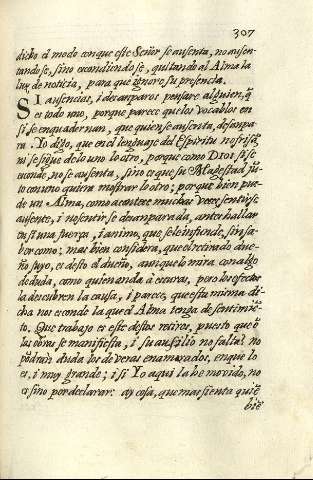 307
dicho el modo con que este Señor se ausenta, no ausen-
tandose, sino escondiendose, quitando al Alma la
luz, de noticia, para que ignore su presencia.
SI ausencias, i desamparos pensare alguien, q̃
es todo uno, porque parece que los vocablos en
si se enquadernan, que quien se ausenta, desampa-
ra. Yo digo, que en el lenguage del Espiritu no frisã,
ni se sigue de lo uno lo otro, porque como DIOS, si se
esconde, no se ausenta, sino es que su Magestad jũ-
to con uno quiera mostrar lo otro; porque bien pue-
de un Alma, como acontece muchas veces sentirse
ausente, i no sentirse desamparada, antes hallar
en si una fuerça, i animo, que se le infunde, sin sa-
ber como; mas bien considera, que el retirado due-
ño suyo, es desto el dueño, aunque lo mira con algo
de duda, como quien anda à escuras, pero los efectos
la descubren la causa, i parece, que esta misma di-
cha nos esconde la que el Alma tenga de sentimiẽ-
to. Que trabajo es este destos retiros, puesto que ẽ
las obras se manifiesta, i su auxilio no falta? no
podràn duda los de veras enamorados, en que lo
es, i muy grande; i si Yo aqui la he movido, no
es sino por declarar: ay cosa, que mas sienta quiẽ
biẽ